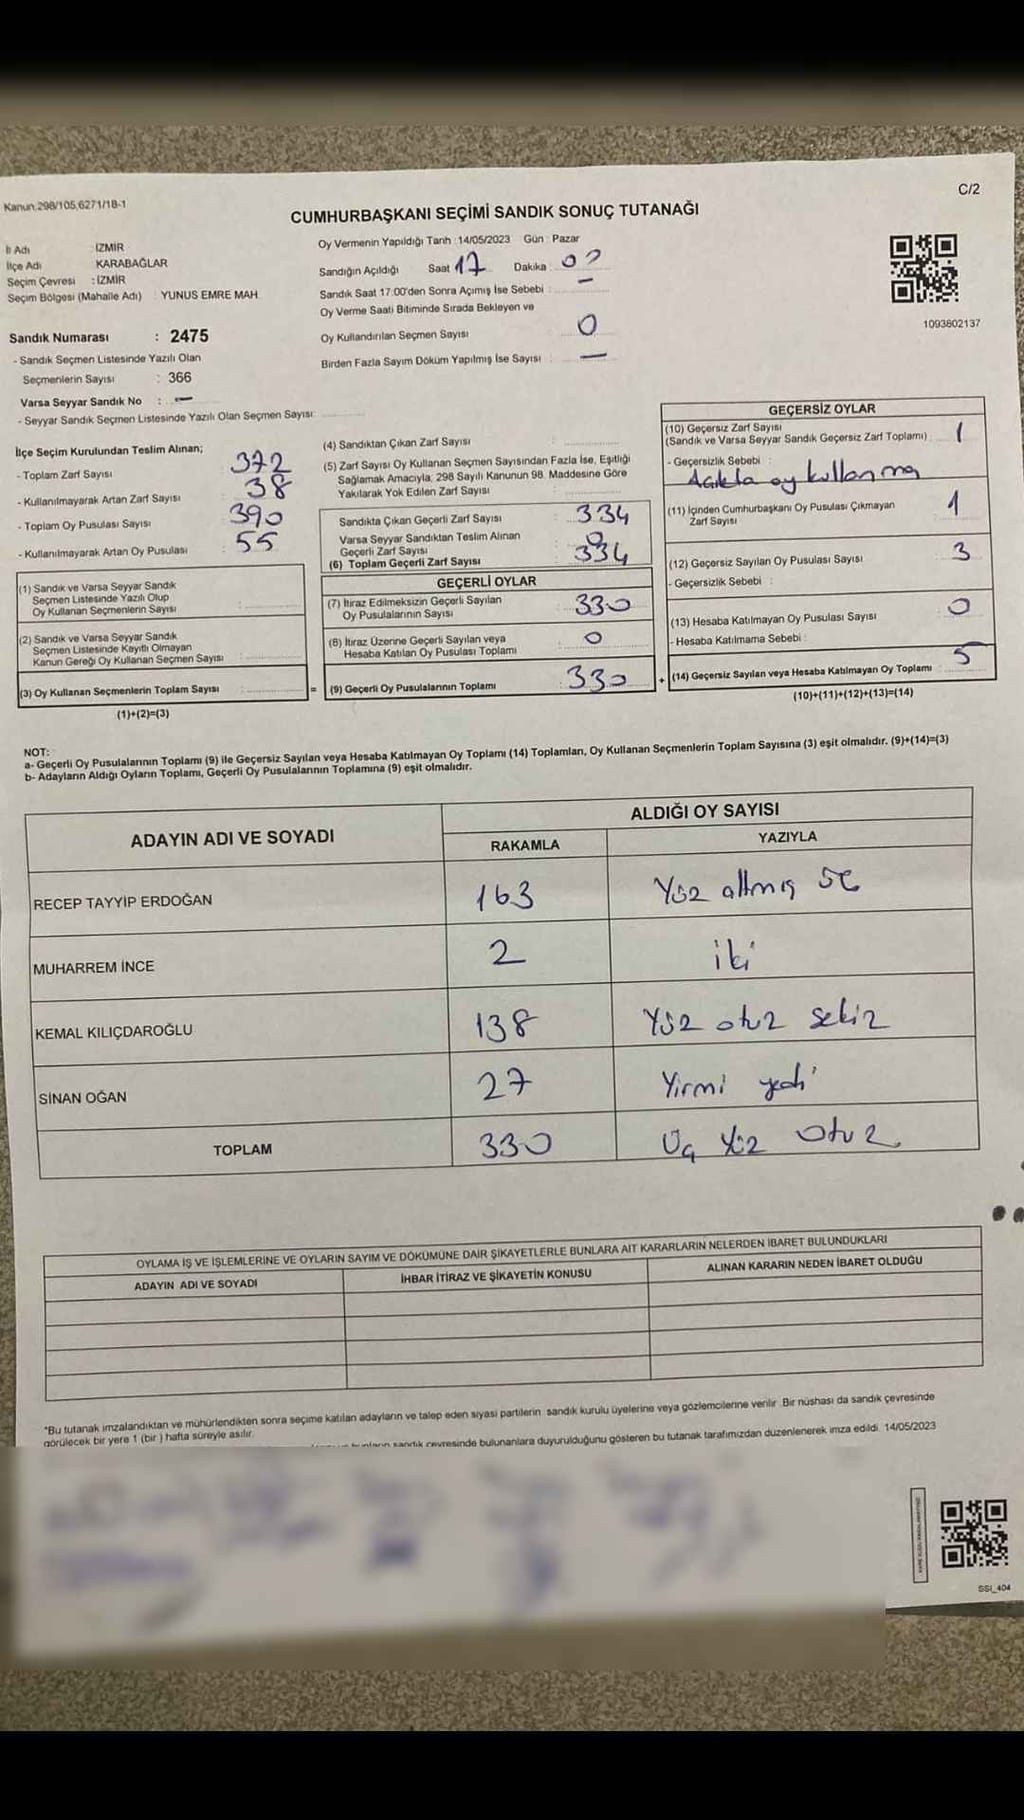 Kanun:298/105,6271/18-1
C/2
CUMHURBAŞKANI SEÇİMİ SANDIK SONUÇ TUTANAĞI
İl Adı : İZMİR
İlçe Adı : KARABAĞLAR
Seçim Çevresi : İZMİR
Seçim Bölgesi (Mahalle Adı) : YUNUS EMRE MAH.
Sandık Numarası : 2475
- Sandık Seçmen Listesinde Yazılı Olan
Seçmenlerin Sayısı : 366
Varsa Seyyar Sandık No : -
- Seyyar Sandık Seçmen Listesinde Yazılı Olan Seçmen Sayısı:
Oy Vermenin Yapıldığı Tarih : 14/05/2023 Gün : Pazar
Sandığın Açıldığı Saat 17 Dakika 00
Sandık Saat 17:00'den Sonra Açımış İse Sebebi : -
Oy Verme Saati Bitiminde Sırada Bekleyen ve
Oy Kullandırılan Seçmen Sayısı : 0
Birden Fazla Sayım Döküm Yapılmış İse Sayısı : -
1093602137
İlçe Seçim Kurulundan Teslim Alınan;
- Toplam Zarf Sayısı : 372
- Kullanılmayarak Artan Zarf Sayısı : 38
- Toplam Oy Pusulası Sayısı : 390
- Kullanılmayarak Artan Oy Pusulası : 55
(1) Sandık ve Varsa Seyyar Sandık
Seçmen Listesinde Yazılı Olup
Oy Kullanan Seçmenlerin Sayısı :
(2) Sandık ve Varsa Seyyar Sandık
Seçmen Listesinde Kayıtlı Olmayan
Kanun Gereği Oy Kullanan Seçmen Sayısı :
(3) Oy Kullanan Seçmenlerin Toplam Sayısı : =
(1)+(2)=(3)
(4) Sandıktan Çıkan Zarf Sayısı :
(5) Zarf Sayısı Oy Kullanan Seçmen Sayısından Fazla İse, Eşitliği
Sağlamak Amacıyla; 298 Sayılı Kanunun 98. Maddesine Göre
Yakılarak Yok Edilen Zarf Sayısı :
Sandıkta Çıkan Geçerli Zarf Sayısı : 334
Varsa Seyyar Sandıktan Teslim Alınan
Geçerli Zarf Sayısı : 0
(6) Toplam Geçerli Zarf Sayısı : 334
GEÇERLİ OYLAR
(7) İtiraz Edilmeksizin Geçerli Sayılan
Oy Pusulalarının Sayısı : 330
(8) İtiraz Üzerine Geçerli Sayılan veya
Hesaba Katılan Oy Pusulası Toplamı : 0
(9) Geçerli Oy Pusulalarının Toplamı : 330 +
GEÇERSİZ OYLAR
(10) Geçersiz Zarf Sayısı
(Sandık ve Varsa Seyyar Sandık Geçersiz Zarf Toplamı) : 1
- Geçersizlik Sebebi :
Açıkta oy kullanma
(11) İçinden Cumhurbaşkanı Oy Pusulası Çıkmayan
Zarf Sayısı : 1
(12) Geçersiz Sayılan Oy Pusulası Sayısı : 3
- Geçersizlik Sebebi :
(13) Hesaba Katılmayan Oy Pusulası Sayısı : 0
- Hesaba Katılmama Sebebi :
(14) Geçersiz Sayılan veya Hesaba Katılmayan Oy Toplamı : 5
(10)+(11)+(12)+(13)=(14)
NOT:
a- Geçerli Oy Pusulalarının Toplamı (9) ile Geçersiz Sayılan veya Hesaba Katılmayan Oy Toplamı (14) Toplamları, Oy Kullanan Seçmenlerin Toplam Sayısına (3) eşit olmalıdır. (9)+(14)=(3)
b- Adayların Aldığı Oyların Toplamı, Geçerli Oy Pusulalarının Toplamına (9) eşit olmalıdır.
ADAYIN ADI VE SOYADI
ALDIĞI OY SAYISI
RAKAMLA YAZIYLA
RECEP TAYYİP ERDOĞAN 163 Yüz altmış üç
MUHARREM İNCE 2 iki
KEMAL KILIÇDAROĞLU 138 Yüz otuz sekiz
SİNAN OĞAN 27 Yirmi yedi
TOPLAM 330 Üç Yüz Otuz
OYLAMA İŞ VE İŞLEMLERİNE VE OYLARIN SAYIM VE DÖKÜMÜNE DAİR ŞİKAYETLERLE BUNLARA AİT KARARLARIN NELERDEN İBARET BULUNDUKLARI
ADAYIN ADI VE SOYADI İHBAR İTİRAZ VE ŞİKAYETİN KONUSU ALINAN KARARIN NEDEN İBARET OLDUĞU
*Bu tutanak imzalandıktan ve mühürlendikten sonra seçime katılan adayların ve talep eden siyasi partilerin sandık kurulu üyelerine veya gözlemcilerine verilir. Bir nüshası da sandık çevresinde
görülecek bir yere 1 (bir ) hafta süreyle asılır.
sandık çevresinde bulunanlara duyurulduğunu gösteren bu tutanak tarafımızdan düzenlenerek imza edildi. 14/05/2023
SSI_404